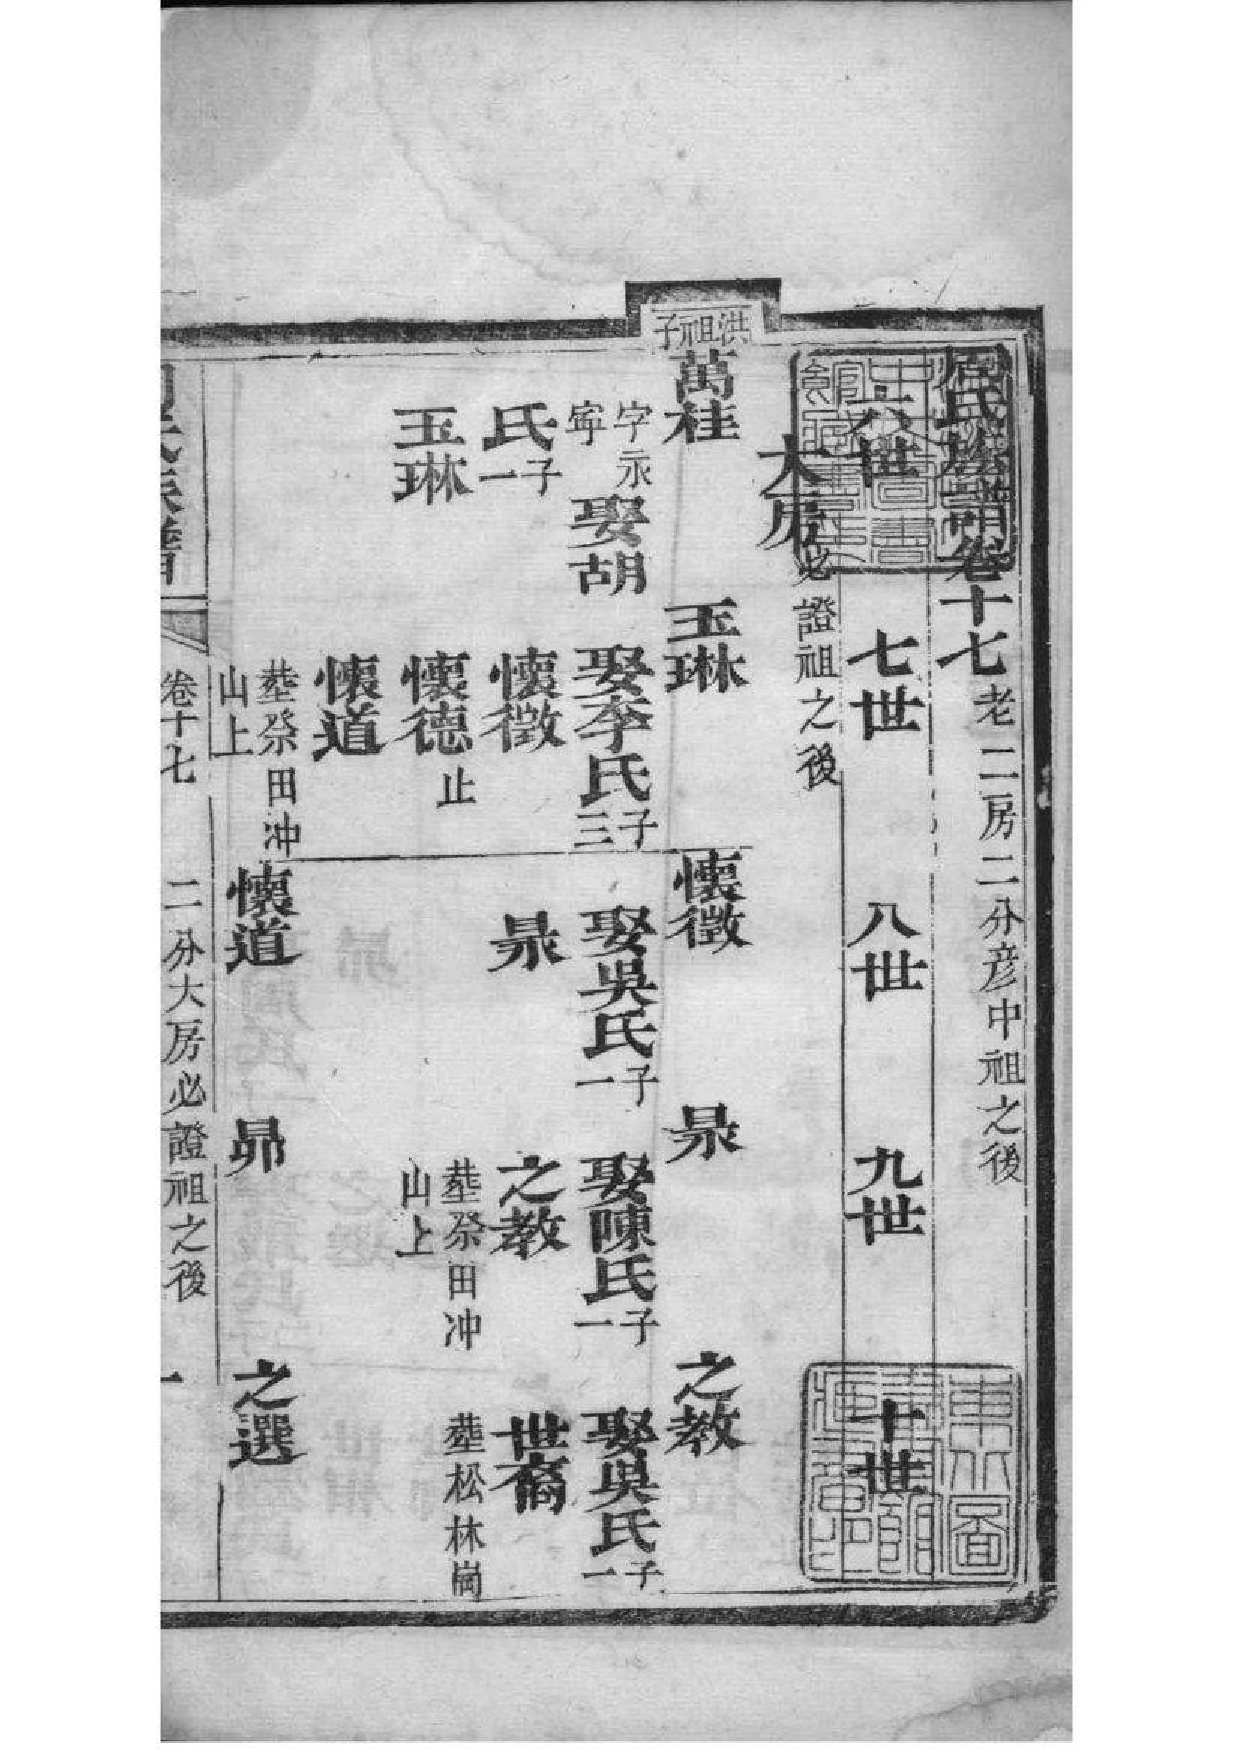 周氏族譜卷十七 老二房二分彦中祖之後
六世 七世 八世 九世 十世
大房 必證祖之後
洪祖子
萬桂 玉琳 懷徵 杲 之教
字永寧 娶胡氏 一子
玉琳
娶李氏 三子
懷徵
懷德 止
懷道
娶吳氏 一子
杲
娶陳氏 一子
之教
葬祭田冲山上
娶吳氏 一子
世裔
葬松林崗
葬祭田冲山上
懷道 昴 之選
卷十七 二分大房必證祖之後 一